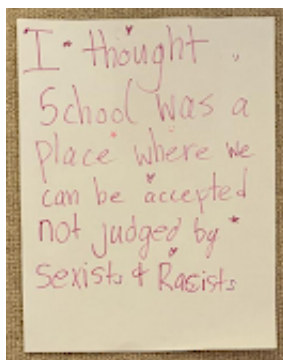 I thought
School was a
place where we
can be accepted
not judged by
Sexists & Racists